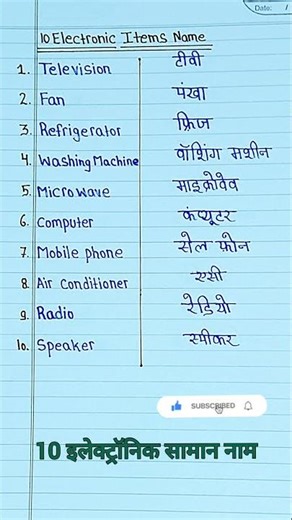 Date: /
10 Electronic Items Name
1. Television टीवी
2. Fan पंखा
3. Refrigerator फ्रिज
4. Washing Machine वॉशिंग मशीन
5. Microwave माइक्रोवेव
6. Computer कंप्यूटर
7. Mobile phone सेल फ़ोन
8. Air Conditioner एसी
9. Radio रेडियो
10. Speaker स्पीकर
SUBSCRIBED
10 इलेक्ट्रॉनिक सामान नाम